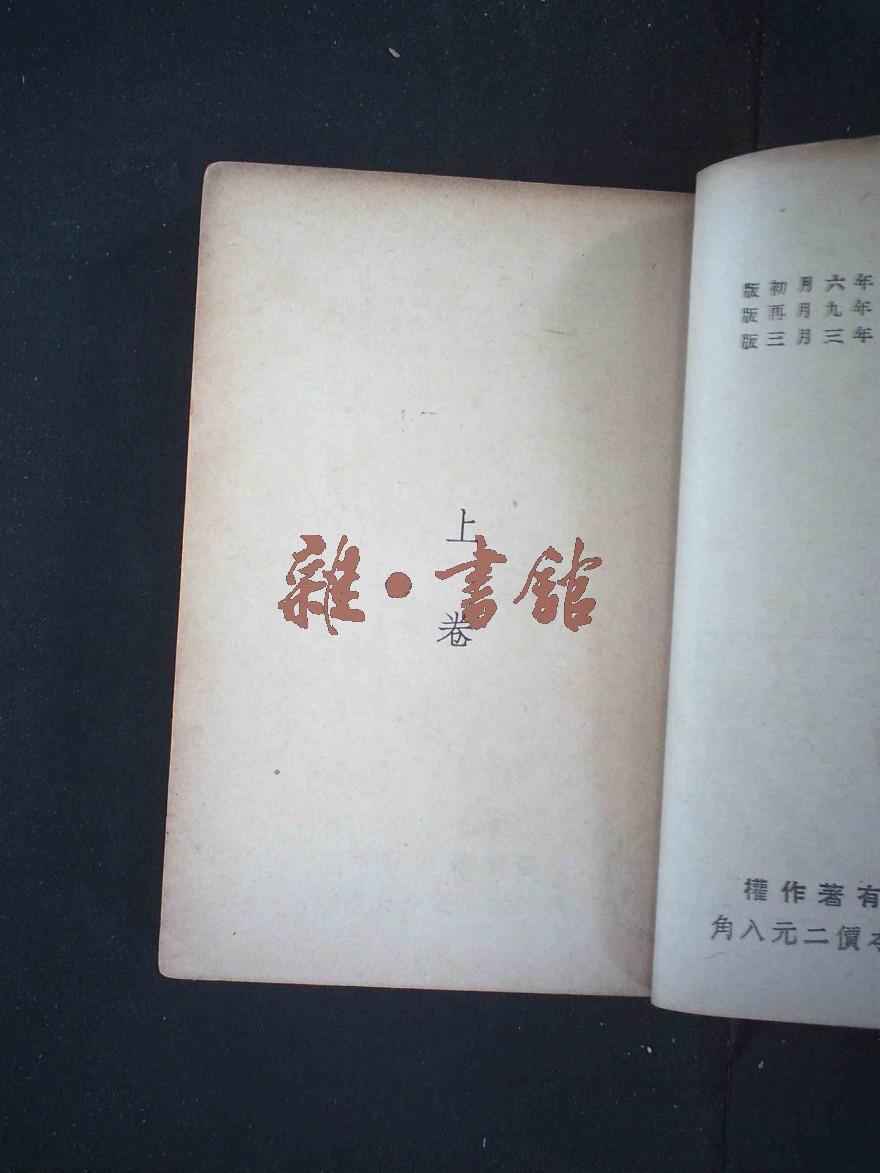 上卷
雜·書館
年六月初版
年九月再版
年三月三版
有著作權
本價二元八角